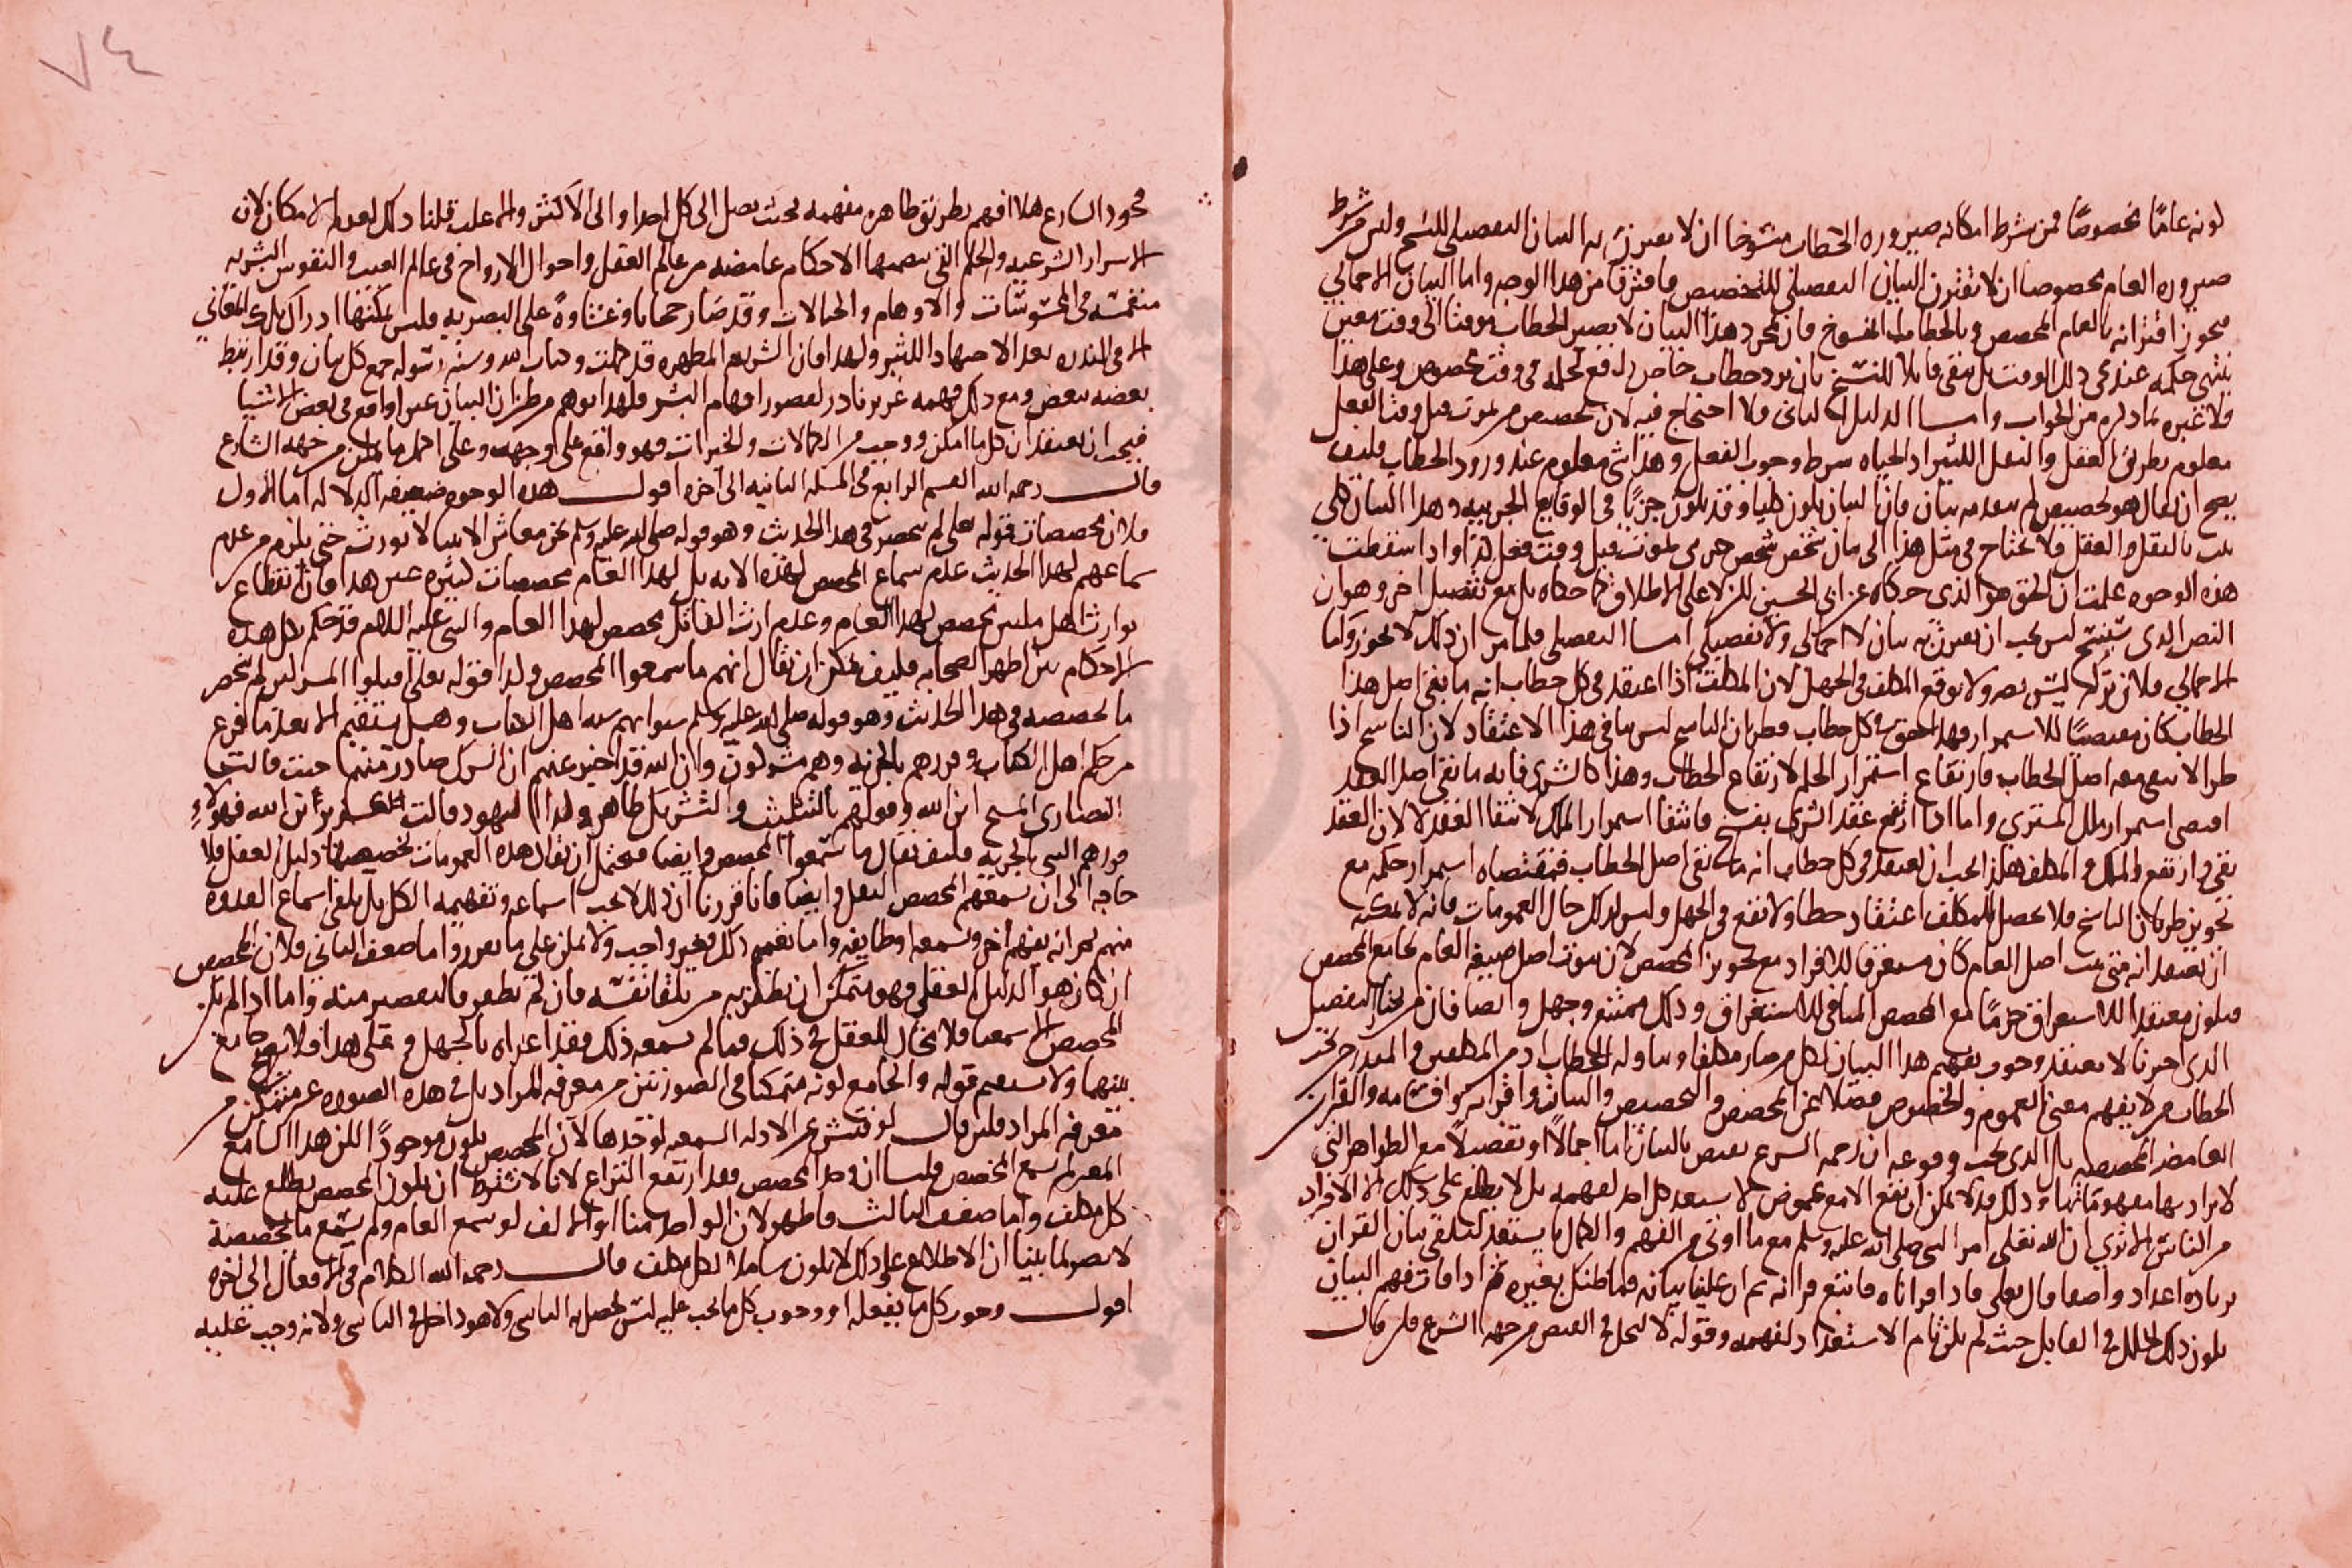 لونه عامًا مخصوصًا فمن شرط امكانه صيروره الخطاب منسوخا ان لا يعترن به البيان التفصيلى للنسخ وليس من شرط
صيروره العام مخصوصا ان لا تقترن البيان التفصيلى للتخصيص فافترقا من هذا الوجه واما البيان الاجمالي
فيجوز اقترانه بالعام المخصص وبالخطاب المنسوخ فان مجرد هذا البيان لا يصير الخطاب موقتا الى وقت معين
ينتهى حكمه عند مجى ذلك الوقت بل يبقى قابلا للنسخ بان يرد خطاب خاص رافع لحكمه فى وقت مخصوص وعلى هذا
فلا غيره بما ذكره من الجواب واما الدليل الثانى فلا احتياج فيه لان تخصيص من يموت قبل وقت الفعل
معلوم بطريق العقل والنقل اللذين الحياه شرط وجوب الفعل وهذا شى معلوم عند ورود الخطاب فكيف
يصح ان يقال هو تخصيص لم يتقدمه بيان فان البيان يكون كليا وقد يكون جزئيًا فى الوقايع الجزييه وهذا البيان كلى
ثبت بالنقل والعقل فلا يحتاج فى مثل هذا الى بيان شخص شخص حتى من يموت قبل وقت فعل كذا واذا سقطت
هذه الوجوه علمت ان الحق هو الذى حكاه عن ابى الحسين لكن لا على الاطلاق كما حكاه بل مع تفصيل اخر وهو ان
النص الذى سينسخ ليس يجب ان يقترن به بيان لا اجمالى ولا تفصيلى اما التفصيلى فلما مر ان ذلك لا يجوز واما
الاجمالي فلان تركه ليس يضر ولا يوقع المكلف فى الجهل لان المكلف اذا اعتقد فى كل خطاب انه ما بقى اصل هذا
الخطاب كان مقتضيًا للاستمرار فهذا الحق فى كل خطاب وطريان الناسخ ليس ينافى هذا الاعتقاد لان الناسخ اذا
طرا لا يبقى معه اصل الخطاب فارتفاع استمرار الحكم لارتفاع الخطاب وهذا كالشرى فانه ما بقى اصل العقد
اقتضى استمرار ملك المشترى واما اذا ارتفع عقد الشرى بفسخ فانتفا استمرار الملك لانتفا العقد لا لان العقد
بقى وارتفع الملك والمكلف هكذا يجب ان يعتقد فى كل خطاب انه ما بقى اصل الخطاب فمقتضاه استمرار حكمه مع
تجويز طريان الناسخ فلا يحصل للمكلف اعتقاد خطا ولا يقع فى الجهل وليس كذلك حال العمومات فانه لا يمكنه
ان يعتقد انه متى ثبت اصل العام كان مستغرقا للافراد مع تجويز المخصص لان ثبوت اصل صيغه العام يجامع المخصص
فيكون معتقدا للاستغراق جزمًا مع المخصص المنافى للاستغراق وذلك ممتنع وجهل وايضا فان من يختار التفصيل
الذى اخترنا لا يعتقد وجوب تفهيم هذا البيان لكل من صار مكلفا ويناوله الخطاب اذ من المكلفين والمندرجين تحت
الخطاب من لا يفهم معنى العموم والخصوص فضلا عن المخصص والتخصيص والبيان واقترانه واقسامه والقران
العامض المخصصه بل الذى يجب وقوعه ان رحمه الشرع تقتضى بالبيان اما اجمالًا او تفصيلًا مع الظواهر التى
لا يراد بها مفهوماتها وذلك قد لا يمكن ان يقع الا مع غموض لا يستعد كل احد لفهمه بل لا يطلع على ذلك الا الافراد
من الناس الا ترى ان الله تعالى امر النبى صلى الله عليه وسلم مع ما اوتى من الفهم والكمال بان يستعد لتلقى بيان القران
بزياده اعداد واصغا قال تعالى فاذا قراناه فاتبع قرانه ثم ان علينا بيانه فما ظنك بغيره ثم اذا فات فهم البيان
يكون ذلك الخلل فى القابل حيث لم يكن تام الاستعداد لفهمه وقوله لا لبخل فى الفيض من جهه الشرع فلئن قال
فجود الشارع هلا افهم بطريق ظاهر مفهمه بحيث يصل الى كل احد او الى الاكثر والاغلب قلنا ذلك لعدم الامكان لان
الاسرار الشرعيه والحكم التى تتضمنها الاحكام غامضه من عالم العقل واحوال الارواح فى عالم الغيب والنفوس البشريه
منغمسه فى المشوشات والاوهام والخيالات وقد صار حجابا وغشاوةً على البصيره فليس يمكنها ادراك تلك المعاني
الا فى الندره بعد الاجتهاد الكثير ولهذا فان الشريعه المطهره قد كملت وكتاب الله وسنه رسوله جمع كل بيان وقد ارتبط
بعضه ببعض ومع ذلك فهمه عزيز نادر لقصور افهام البشر فلهذا يوهم من ظن ان البيان غير واقع فى بعض الاشيا
فيجب ان يعتقد ان كل ما امكن ووجب من الكمالات والخيرات فهو واقع على وجهه وعلى اكمل ما يمكن من جهه الشارع
قال رحمه الله القسم الرابع فى المسله الثانيه الى اخره اقول هذه الوجوه ضعيفه الدلاله اما الاول
فلان مخصصات قوله تعالى لم تنحصر فى هذا الحديث وهو قوله صلى الله عليه وسلم نحن معاشر الانبيا لا نورث حتى يلزم من عدم
سماعهم لهذا الحديث عدم سماع المخصص لهذه الايه بل لهذا العام مخصصات كثيره غير هذا فان انقطاع
توارث اهل ملتين مخصص لهذا العام وعدم ارث القاتل مخصص لهذا العام والنبى عليه السلم قد حكم بكل هذه
الاحكام بين اظهر الصحابه فكيف يمكن ان يقال انهم ما سمعوا المخصص وكذا قوله تعالى اقتلوا المشركين لم ينحصر
ما يخصصه فى هذا الحديث وهو قوله صلى الله عليه وسلم سنوا بهم سنه اهل الكتاب وهل يستقيم الا بعد ما فرغ
من حكم اهل الكتاب وقررهم بالجزيه وهم مشركون وان الله قد اخبر عنهم ان الشرك صادر منهم حيث قالت
النصارى المسيح ابن الله وقولهم بالتثليث والشرك ظاهر وكذا اليهود قالت عزير ابن الله فهولاءِ
قررهم النبى بالجزيه فكيف يقال ما سمعوا المخصص وايضا فيحتمل ان يقال هذه العمومات تخصيصها دليل العقل فلا
حاجه الى ان يسمعهم المخصص النقلى وايضا فانا قررنا ان ذلك لا يجب اسماعه وتفهيمه الكل بل يكفى اسماع العدوه
منهم ثم انه يفهم اخر ويسمعه وطايفه واما تعميم ذلك فغير واجب ولا يمكن على ما تقرر واما ضعف الثانى فلان المخصص
ان كان هو الدليل العقلى فهو متمكن ان يظفر به من تلقا نفسه فان لم يظفر فالتقصير منه واما اذا لم يكن
المخصص الا سمعيا فلا مجال للعقل فى ذلك فما لم يسمعه ذلك فقد اغراه بالجهل وعلى هذا فلا جامع
بينهما ولا يستقيم قوله والجامع كونه متمكنا فى الصورتين من معرفه المراد بل فى هذه الصوره غير متمكن من
معرفه المراد فلئن قال لو فتش عن الادله السمعيه لوجدها لان المخصص يكون موجودًا لكن هذا السامع
المعين لم يسمع المخصص قلنا ان وجد المخصص فقد ارتفع النزاع لانا لا نشترط ان يكون المخصص يطلع عليه
كل مكلف واما ضعف الثالث فاظهر لان الواحد منا لو سمع العام ولم يسمع ما يخصصه
لا يضر لما بينا ان الاطلاع على ذلك لا يكون شاملا لكل مكلف قال رحمه الله الكلام فى الافعال الى اخره
اقول وجوب كل ما يفعله او وجوب كل ما يجب عليه ليس يحصل به التاسى ولا هو داخل فى التاسى ولانه وجب عليه
٧٤